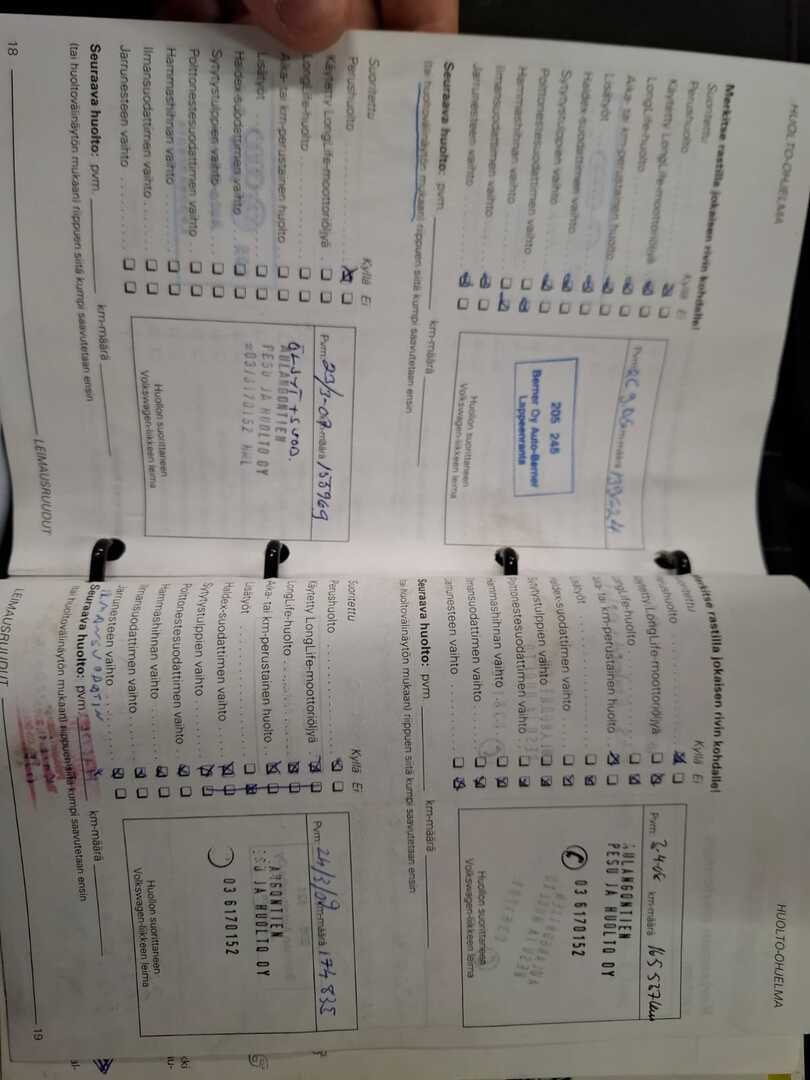 HUOLTO-OHJELMA
Merkitse rastilla jokaisen rivin kohdalle!
Suoritettu Kyllä Ei
Perushuolto
Käytetty LongLife-moottoriöljyä
LongLife-huolto
Aika- tai km-perustainen huolto
Lisätyöt
Haldex-suodattimen vaihto
Sytytystulppien vaihto
Polttonestesuodattimen vaihto
Hammashihnan vaihto
Ilmansuodattimen vaihto
Jarrunesteen vaihto
Seuraava huolto: pvm. km-määrä
(tai huoltovälinäytön mukaan) riippuen siitä kumpi saavutetaan ensin
Pvm: km-määrä
205 245
Berner Oy Auto-Berner
Lappeenranta
Huollon suorittaneen
Volkswagen-liikkeen leima
Suoritettu Kyllä Ei
Perushuolto
Käytetty LongLife-moottoriöljyä
LongLife-huolto
Aika- tai km-perustainen huolto
Lisätyöt
Haldex-suodattimen vaihto
Sytytystulppien vaihto
Polttonestesuodattimen vaihto
Hammashihnan vaihto
Ilmansuodattimen vaihto
Jarrunesteen vaihto
Seuraava huolto: pvm. km-määrä
(tai huoltovälinäytön mukaan) riippuen siitä kumpi saavutetaan ensin
Pvm: km-määrä 153969
AULANGONTIEN
PESU JA HUOLTO OY
Huollon suorittaneen
Volkswagen-liikkeen leima
18
LEIMAUSRUUDUT
HUOLTO-OHJELMA
erkitse rastilla jokaisen rivin kohdalle!
Kyllä Ei
erushuolto
ytetty LongLife-moottoriöljyä
ongLife-huolto
tai km-perustainen huolto
säryöt
aldex-suodattimen vaihto
Sytytystulppien vaihto
Polttonestesuodattimen vaihto
ammashihnan vaihto
lmansuodattimen vaihto
arrunesteen vaihto
Seuraava huolto: pvm. km-määrä
tai huoltovälinäytön mukaan) riippuen siitä kumpi saavutetaan ensin
Pvm: km-määrä 165 527 km
AULANGONTIEN
PESU JA HUOLTO OY
03 6170152
Huollon suorittaneen
Volkswagen-liikkeen leima
Suoritettu Kyllä Ei
Perushuolto
Käytetty LongLife-moottoriöljyä
LongLife-huolto
Aika- tai km-perustainen huolto
Lisätyöt
Haldex-suodattimen vaihto
Sytytystulppien vaihto
Polttonestesuodattimen vaihto
Hammashihnan vaihto
Ilmansuodattimen vaihto
Jarrunesteen vaihto
ILMANSUODATIN
Seuraava huolto: pvm. km-määrä
tai huoltovälinäytön mukaan) riippuen siitä kumpi saavutetaan ensin
Pvm: km-määrä 174835
ANGONTIEN
SU JA HUOLTO OY
03 6170152
Huollon suorittaneen
Volkswagen-liikkeen leima
LEIMAUSRUUDUT
19